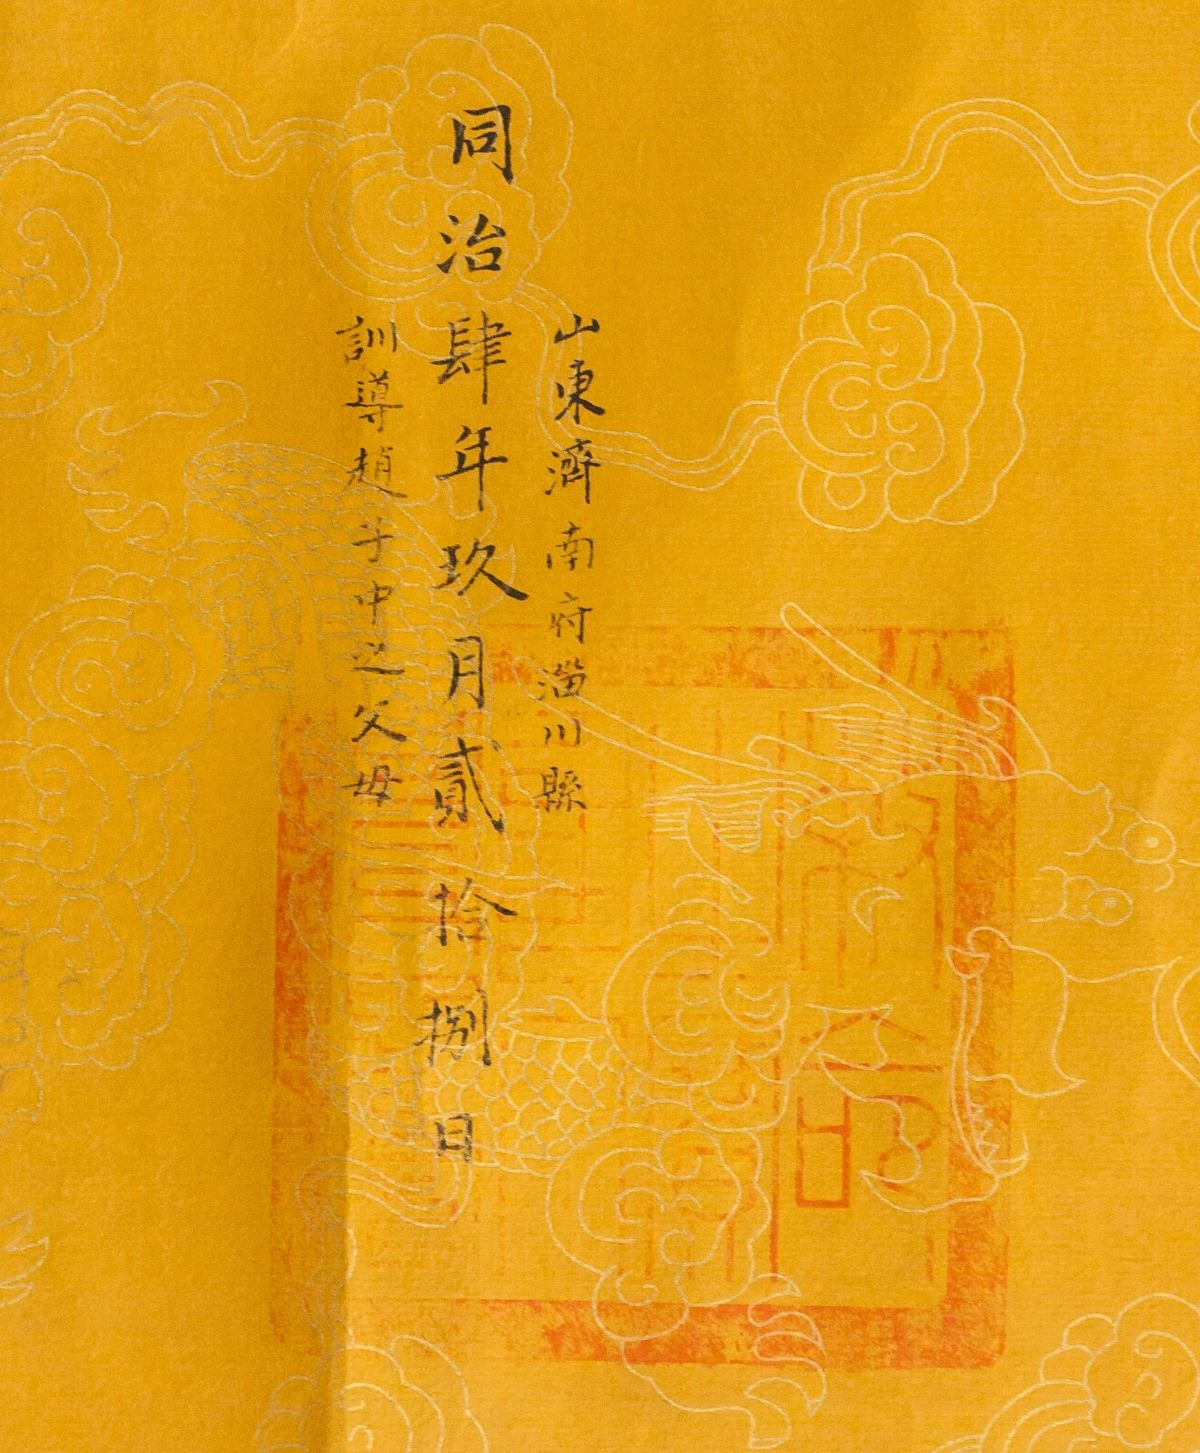 山東濟南府淄川縣
同治肆年玖月貳拾捌日
訓導趙芋中之父母